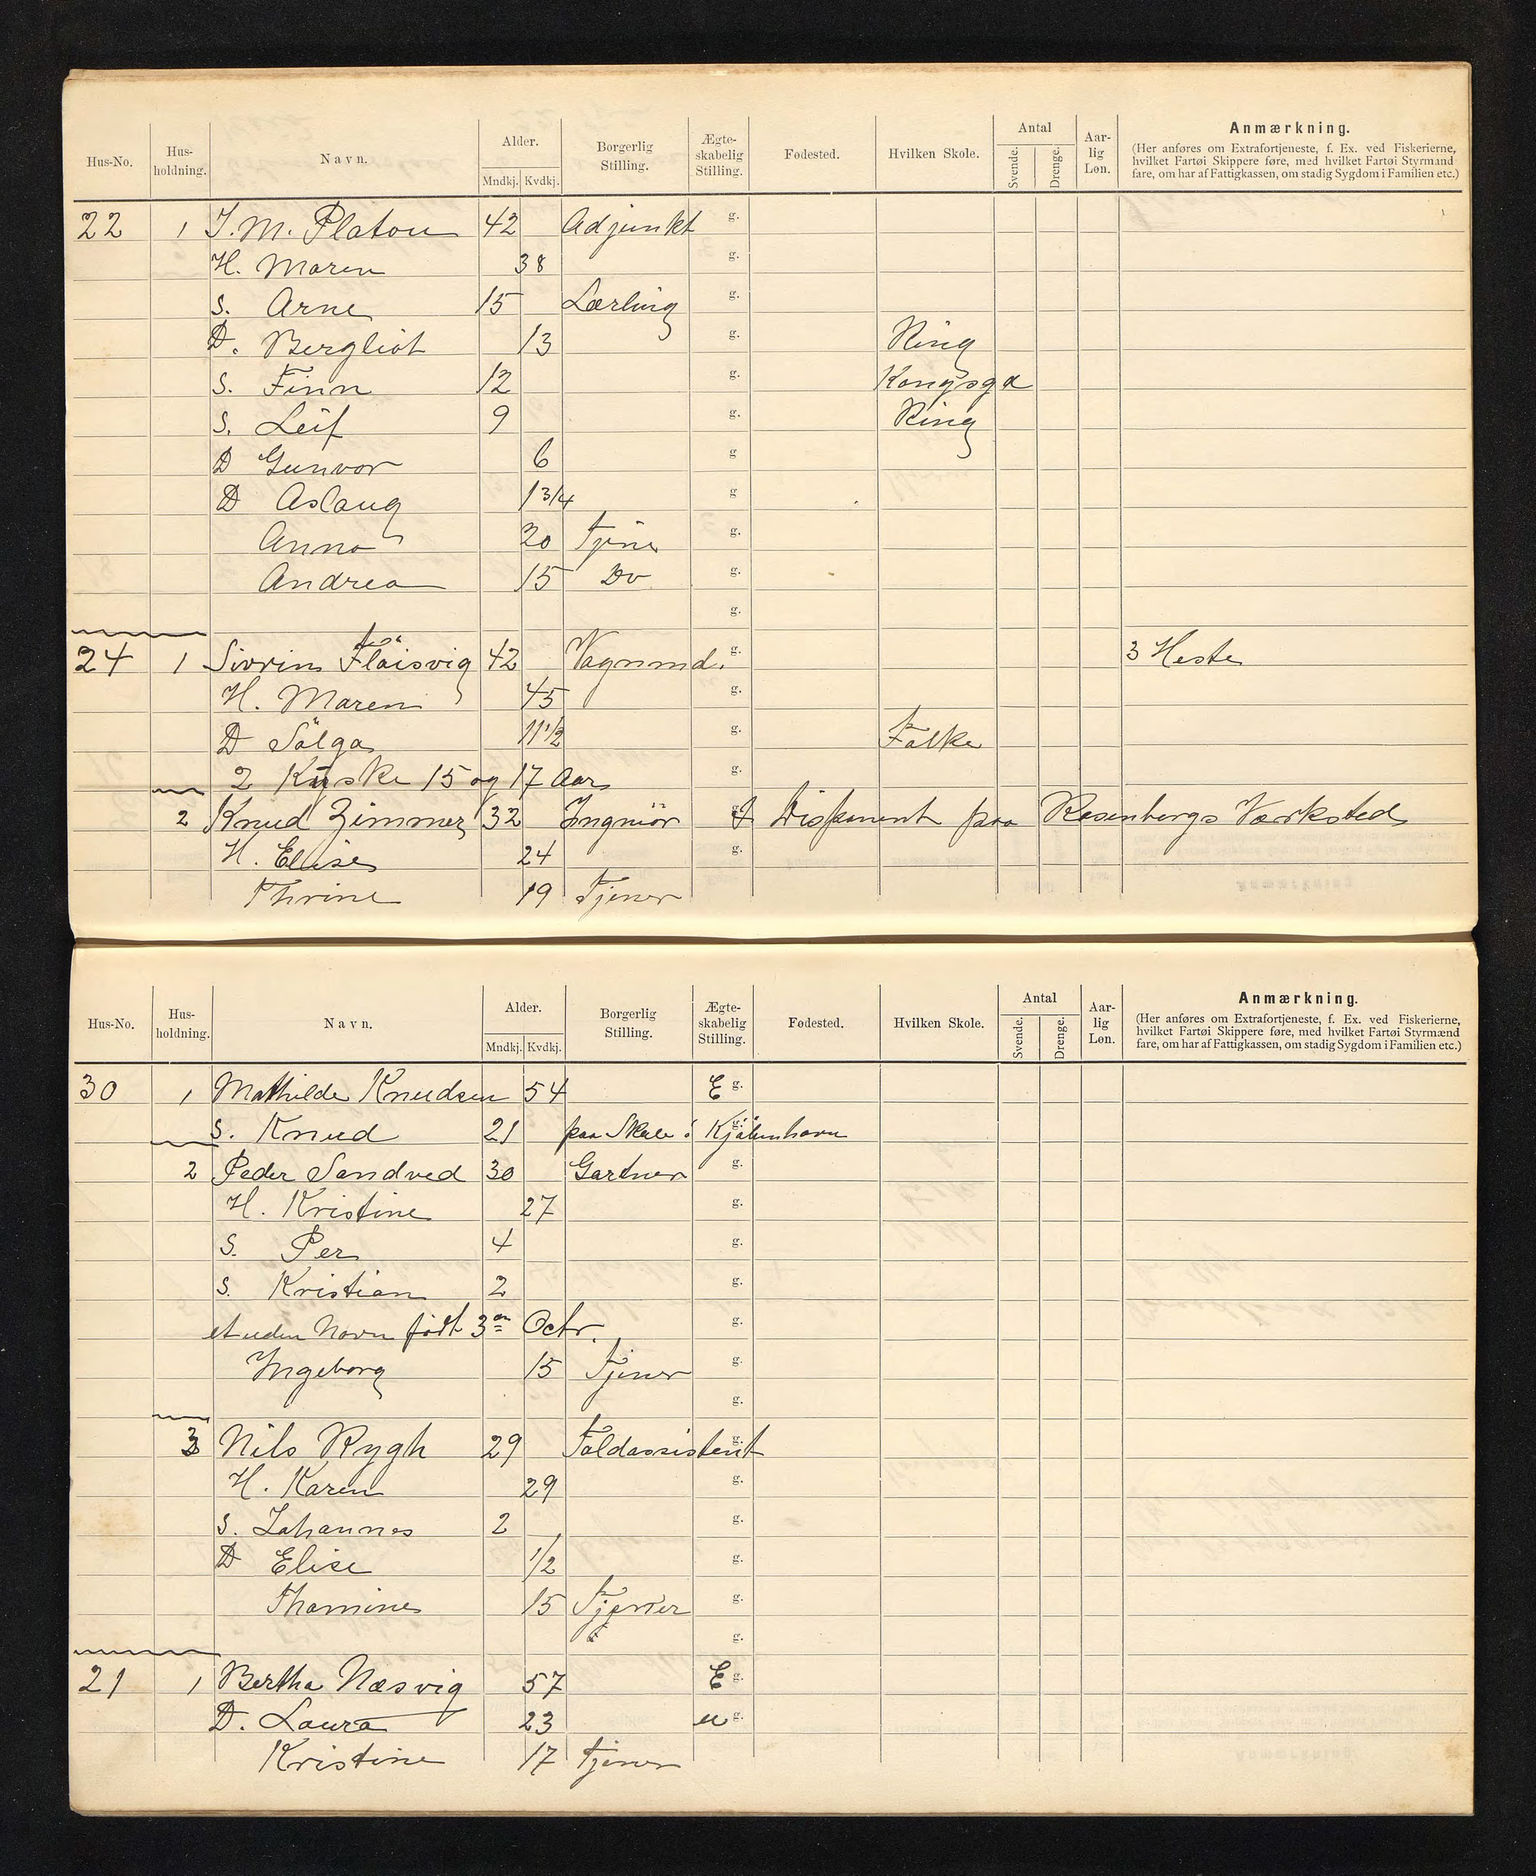 Hus-No. Hus-holdning. Navn. Alder. Mndkj. Kvdkj. Borgerlig Stilling. Ægte-skabelig Stilling. Fødested. Hvilken Skole. Antal Svende. Drenge. Aar-lig Løn. Anmærkning.
(Her anføres om Extrafortjeneste, f. Ex. ved Fiskerierne,
hvilket Fartøi Skippere føre, med hvilket Fartøi Styrmænd
fare, om har af Fattigkassen, om stadig Sygdom i Familien etc.)
22 1 J. M. Platou 42 Adjunkt g.
H. Maren 38 g.
S. Arne 15 Lærling g.
D. Bergliot 13 g. Ring
S. Finn 12 g. Kongsgd
S. Leif 9 g. Ring
D Gunvor 6 g
D Aslaug 1 3/4 g
Anna 20 Tjener g.
Andrea 15 Do g.
g.
24 1 Sivrin Flöisvig 42 Vognmd. g. 3 Heste
H. Maren 45 g.
D Sölga 11 1/2 g. Folke
2 Kyske 15 og 17 Aar g.
2 Knud Zimmer 32 Ingniör g. Disponent paa Rosenbergs Værksted
H. Elise 24 g.
Thrine 19 Tjener
Hus-No. Hus-holdning. Navn. Alder. Mndkj. Kvdkj. Borgerlig Stilling. Ægte-skabelig Stilling. Fødested. Hvilken Skole. Antal Svende. Drenge. Aar-lig Løn. Anmærkning.
(Her anføres om Extrafortjeneste, f. Ex. ved Fiskerierne,
hvilket Fartøi Skippere føre, med hvilket Fartøi Styrmænd
fare, om har af Fattigkassen, om stadig Sygdom i Familien etc.)
30 1 Mathilde Knudsen 54 E g.
S. Knud 21 paa Skole i Kjöbenhavn g.
2 Peder Sandved 30 Gartner g.
H. Kristine 27 g.
S. Per 4 g.
S. Kristian 2 g.
et uden Navn födt 3en Octr. g.
Ingeborg 15 Tjener g.
g.
3 Nils Rygh 29 Toldassistent g.
H. Karen 29 g.
S. Johannes 2 g.
D Elise 1/2 g.
Thomine 15 Tjener g.
g.
21 1 Bertha Næsvig 57 E g.
D. Laura 23 u g.
Kristine 17 Tjener